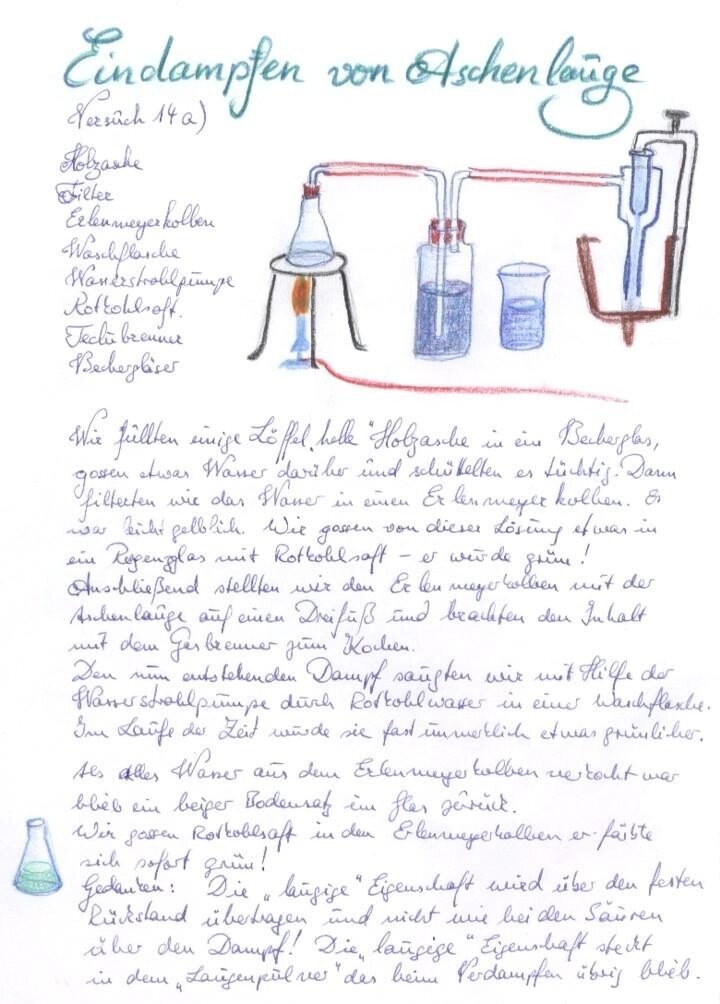 Eindampfen von Aschenlauge
Versuch 14a)
Holzasche
Filter
Erlenmeyerkolben
Waschflasche
Wasserstrahlpumpe
Rotkohlsaft.
Teclubrenner
Bechergläser
Wir füllten einige Löffel "helle" Holzasche in ein Becherglas,
gossen etwas Wasser darüber und schüttelten es tüchtig. Dann
filterten wir das Wasser in einen Erlenmeyerkolben. Es
war leicht gelblich. Wir gossen von dieser Lösung etwas in
ein Reagenzglas mit Rotkohlsaft – er wurde grün!
Anschließend stellten wir den Erlenmeyerkolben mit der
Aschenlauge auf einen Dreifuß und brachten den Inhalt
mit dem Gasbrenner zum Kochen.
Den nun entstehenden Dampf saugten wir mit Hilfe der
Wasserstrahlpumpe durch Rotkohlwasser in einer Waschflasche.
Im Laufe der Zeit wurde sie fast unmerklich etwas grünlicher.
Als alles Wasser aus dem Erlenmeyerkolben verkocht war
blieb ein beiger Bodensatz im Glas zurück.
Wir gossen Rotkohlsaft in den Erlenmeyerkolben er färbte
sich sofort grün!
Gedanken: Die „laugige" Eigenschaft wird über den festen
Rückstand übertragen und nicht wie bei den Säuren
über den Dampf! Die „laugige" Eigenschaft steckt
in dem „Laugenpulver" das beim Verdampfen übrig blieb.